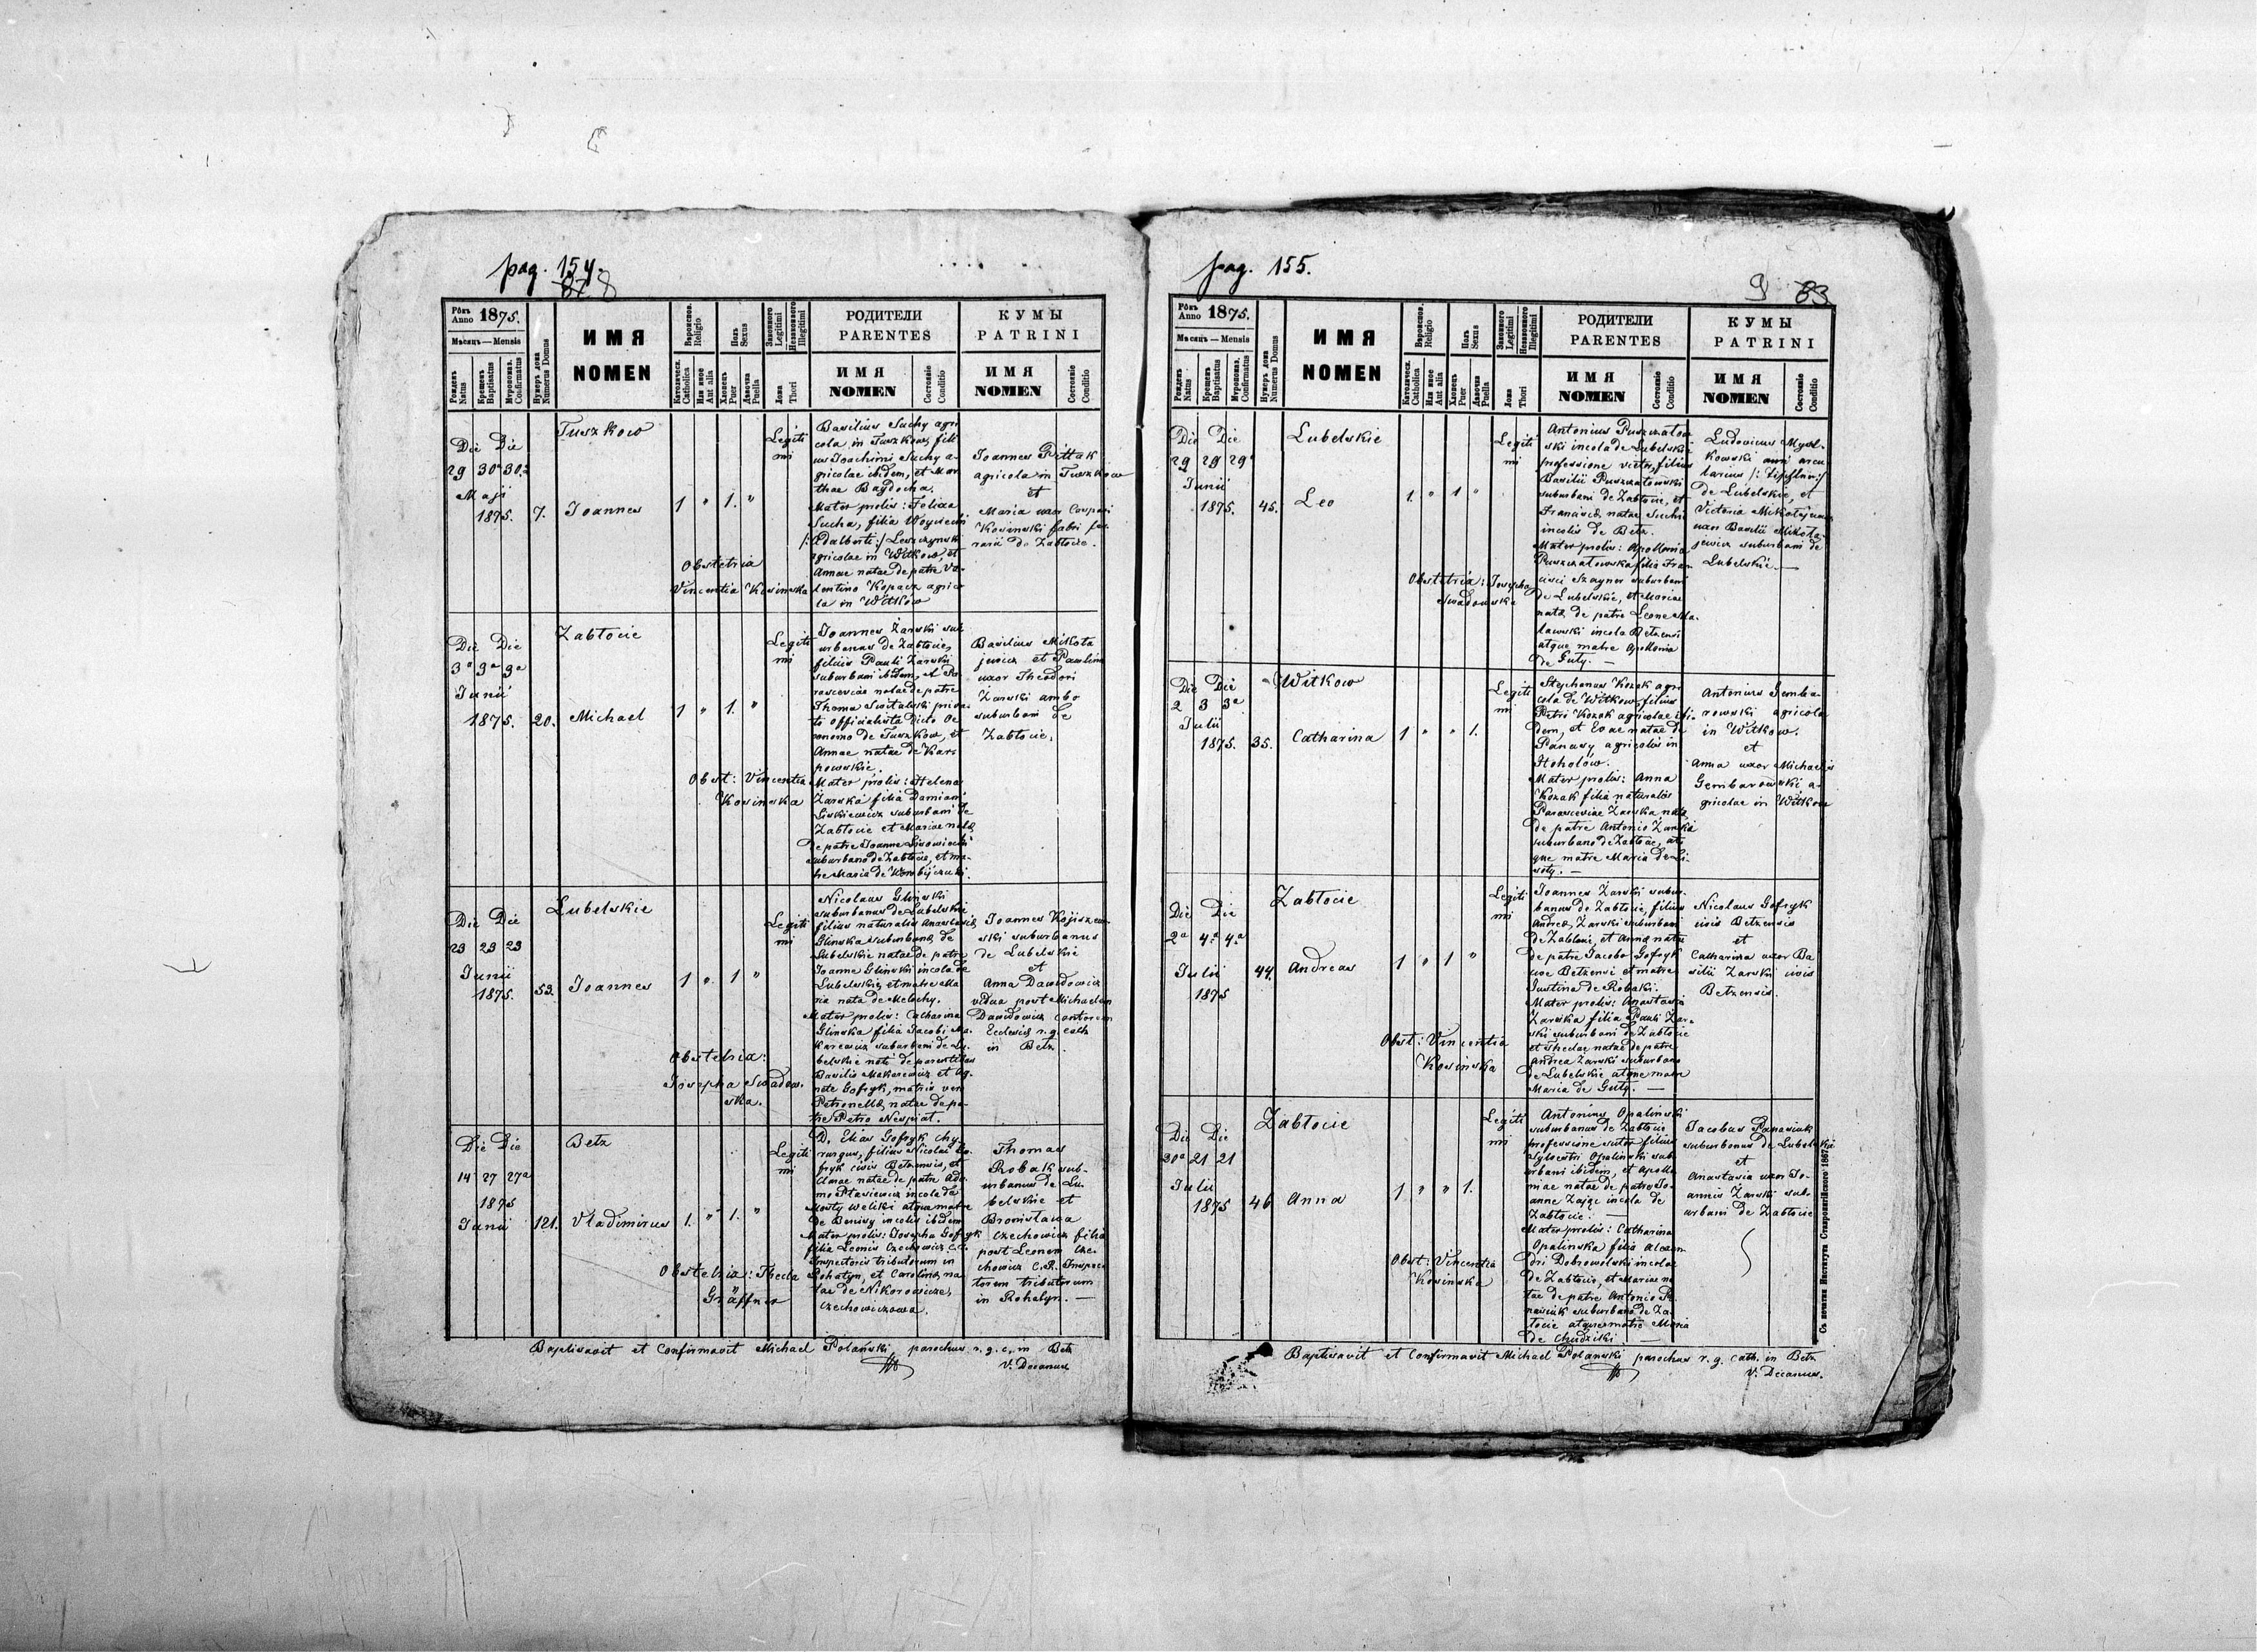 pag. 154.
87 8
Рôкъ Anno 1875.
Мѣсяцъ — Mensis
Рожденъ Natus
Крещенъ Baptisatus
Мѵропомаз. Confirmatus
Нумеръ дома Numerus Domus
ИМЯ
NOMEN
Религіо Religio
Католическ. Catholica
Или иное Aut alia
Полъ Sexus
Хлопецъ Puer
Дѣвочка Puella
Законного Legitimi
Незаконного Illegitimi
Ложа Thori
РОДИТЕЛИ
PARENTES
ИМЯ
NOMEN
Состояніе Conditio
КУМЫ
PATRINI
ИМЯ
NOMEN
Состояніе Conditio
Tuszkow
Die Die
29 30a 30a
Maji
1875. 7. Joannes 1 " 1. "
Legiti
mi
Obstetrix
Vincentia Kosinska
Basilius Suchy agri
cola in Tuszkow, fili
us Joachimi Suchy a-
gricolae ibidem, et Mar
thae Baydocha.
Mater prolis: Felixa
Sucha, filia Woyciechi
/:Adalberti:/ Leszczynski
agricolae in Witkow, et
Annae natae de patre Va-
lentino Kopacz agrico
la in Witkow
Joannes Pittak
agricola in Tuszkow
et
Maria uxor Caspari
Kosinski fabri fer
rarii de Zabłocie.
Zabłocie
Die Die
3a 3a 3a
Junii
1875. 20. Michael 1 " 1. "
Legiti
mi
Obst: Vincentia
Kosinska
Joannes Żarski sub
urbanus de Zabłocie,
filius Pauli Żarski
suburbani ibidem, et Pa
rasceviae natae de patre
Thoma Switalski priva
to officialista dicto oe
conomo de Tuszkow, et
Annae natae de Kar-
powskie.
Mater prolis: Helena
Żarska filia Damiani
Liskiewicz suburbani de
Zabłocie et Mariae natae
de patre Joanne
suburbano de Zabłocie, et ma-
tre Maria de
Basilius Mikoła
jewicz et Paulina
uxor Theodori
Żarski ambo
suburbani de
Zabłocie.
Lubelskie
Die Die
23 23 23
Junii
1875. 53. Joannes 1 " 1 "
Legiti
mi
Obstetrix:
Josepha Swadow-
ska.
Nicolaus Glinski
suburbanus de Lubelskie
filius naturalis Anastasiae
Glinska suburbanae de
Lubelskie natae de patre
Joanne Glinski incola de
Lubelskie, et matre Ma
ria nata de Melochy.
Mater prolis: Catharina
Glinska filia Jacobi Ma-
karewicz suburbani de Lu-
belskie nati de parentibus
Basilio Makarewicz et Ag-
nete Gofryk, matris vero
Petronellae natae de pa-
tre Petro Nespiat.
Joannes
ski suburbanus
de Lubelskie
et
Anna Dawidowicz
vidua post Michaelem
Dawidowicz cantorem
Ecclesiae r. g. cath
in Betz.
Betz
Die Die
14 27 27a
1875
Junii 121. Vladimirus 1. " 1. "
Legiti
mi
Obstetrix: Thecla
Gräffner
D. Elias Gofryk chy-
rurgus, filius Nicolai Go-
fryk civis Betzensis, et
Clarae natae de patre Ada-
mo incola de
Mosty wielki atque matre
de incolis ibidem
Mater prolis: Josepha Gofryk
filia Leonis Czechowicz C. R.
Inspectoris tributorum in
Rohatyn, et Carolinae na
tae de Nikorowicze,
Czechowiczowa.
Thomas
Robak sub-
urbanus de Lu-
belskie et
Bronisława
Czechowicz filia
post Leonem Cze-
chowicz C. R. Inspec
torem tributorum
in Rohatyn. —
Baptisavit et Confirmavit Michael Polański parochus r. g. c. in Betz
V. Decanus
pag. 155.
9 83
Рôкъ Anno 1875.
Мѣсяцъ — Mensis
Рожденъ Natus
Крещенъ Baptisatus
Мѵропомаз. Confirmatus
Нумеръ дома Numerus Domus
ИМЯ
NOMEN
Religio
Католическ. Catholica
Или иное Aut alia
Полъ Sexus
Хлопецъ Puer
Дѣвочка Puella
Законного Legitimi
Незаконного Illegitimi
Ложа Thori
РОДИТЕЛИ
PARENTES
ИМЯ
NOMEN
Состояніе Conditio
КУМЫ
PATRINI
ИМЯ
NOMEN
Состояніе Conditio
Lubelskie
Die Die
29 29 29
Junii
1875. 45. Leo 1. " 1 "
Legiti
mi
Obstetrix: Josepha
Swadowska
Antonius Puszczatow
ski incola de Lubelskie
professione victor, filius
Basilii Puszczatowski
suburbani de Zabłocie, et
Franciscae natae Suchi
incolis de Betz.
Mater prolis: Apollonia
Puszczatowska filia Fran
cisci Szayner suburbani
de Lubelskie, et Mariae
natae de patre Leone
incola Betzensi
atque matre Apollonia
de Guty. —
Ludovicus Mysl-
kowski
larius
de Lubelskie, et
Victoria Mikołajewicz
uxor Basilii Mikoła-
jewicz suburbani de
Lubelskie. —
Witkow
Die Die
2 3 3a
Julii
1875. 35. Catharina 1 " " 1.
Legiti
mi
Stephanus Kozak agri
cola de Witkow, filius
Petri Kozak agricolae ibi-
dem, et Evae natae de
Panasy agricolis in
Hoholow.
Mater prolis: Anna
Kozak filia naturalis
Parasceviae Żarska natae
de patre Antonio Żarski
suburbano de Zabłocie, at
que matre Maria de Li-
soty. —
Antonius Gemba-
rowski agricola
in Witkow.
et
Anna uxor Michaelis
Gembarowski a-
gricolae in Witkow
Zabłocie
Die Die
2a 4a 4a
Julii 44. Andreas 1 " 1 "
1875
Legiti
mi
Obst: Vincentia
Kosinska
Joannes Żarski subur-
banus de Zabłocie, filius
Andreae Żarski suburbani
de Zabłocie, et Annae natae
de patre Jacobo Gofryk
cive Betzensi et matre
Justina de Robaki.
Mater prolis: Anastasia
Żarska filia Pauli Żar-
ski suburbani de Zabłocie
et Theclae natae de patre
Andrea Żarski suburbano
de Lubelskie atque matre
Maria de Guty. —
Nicolaus Gofryk
civis Betzensis
et
Catharina uxor Ba
silii Żarski civis
Betzensis.
Zabłocie
Die Die
20a 21 21
Julii
1875 46 Anna 1 " " 1.
Legiti
mi
Obst: Vincentia
Kosinska
Antonius Opalinski
suburbanus de Zabłocie
professione sutor filius
Sylvestri Opalinski sub-
urbani ibidem, et Apollo
niae natae de patre Jo-
anne Zając incola de
Zabłocie. —
Mater prolis: Catharina
Opalinska filia Alexan-
dri Dobrowolski incolae
de Zabłocie, et Mariae na
tae de patre Antonio Pa
nasiuk suburbano de Za-
błocie atque matre Maria
de Chudziki. —
Jacobus Panasiuk
suburbanus de Lubelskie
et
Anastasia uxor Jo-
annis Żarski sub-
urbani de Zabłocie
Съ печатни Института Ставропигійского 1867.
Baptisavit et Confirmavit Michael Polanski parochus r. g. cath. in Betz
V. Decanus.